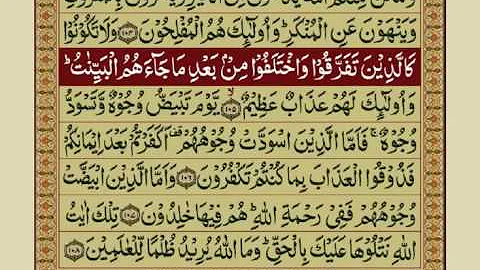 وَيَنۡهَوۡنَ عَنِ الۡمُنۡكَرِ ؕ وَاُولٰٓئِكَ هُمُ الۡمُفۡلِحُوۡنَ ﴿۱۰۴﴾ وَلَا تَكُوۡنُوۡا
كَالَّذِيۡنَ تَفَرَّقُوۡا وَاخۡتَلَفُوۡا مِنۡۢ بَعۡدِ مَا جَآءَهُمُ الۡبَيِّنٰتُ ؕ
وَاُولٰٓئِكَ لَهُمۡ عَذَابٌ عَظِيۡمٌ ۙ﴿۱۰۵﴾ يَّوۡمَ تَبۡيَضُّ وُجُوۡهٌ وَّتَسۡوَدُّ
وُجُوۡهٌ ۚ فَاَمَّا الَّذِيۡنَ اسۡوَدَّتۡ وُجُوۡهُهُمۡ ۟ اَكَفَرۡتُمۡ بَعۡدَ اِيۡمَانِكُمۡ
فَذُوۡقُوا الۡعَذَابَ بِمَا كُنۡتُمۡ تَكۡفُرُوۡنَ ﴿۱۰۶﴾ وَاَمَّا الَّذِيۡنَ ابۡيَضَّتۡ
وُجُوۡهُهُمۡ فَفِىۡ رَحۡمَةِ اللّٰهِ ؕ هُمۡ فِيۡهَا خٰلِدُوۡنَ ﴿۱۰۷﴾ تِلۡكَ اٰيٰتُ
اللّٰهِ نَتۡلُوۡهَا عَلَيۡكَ بِالۡحَقِّ ؕ وَمَا اللّٰهُ يُرِيۡدُ ظُلۡمًا لِّلۡعٰلَمِيۡنَ ﴿۱۰۸﴾